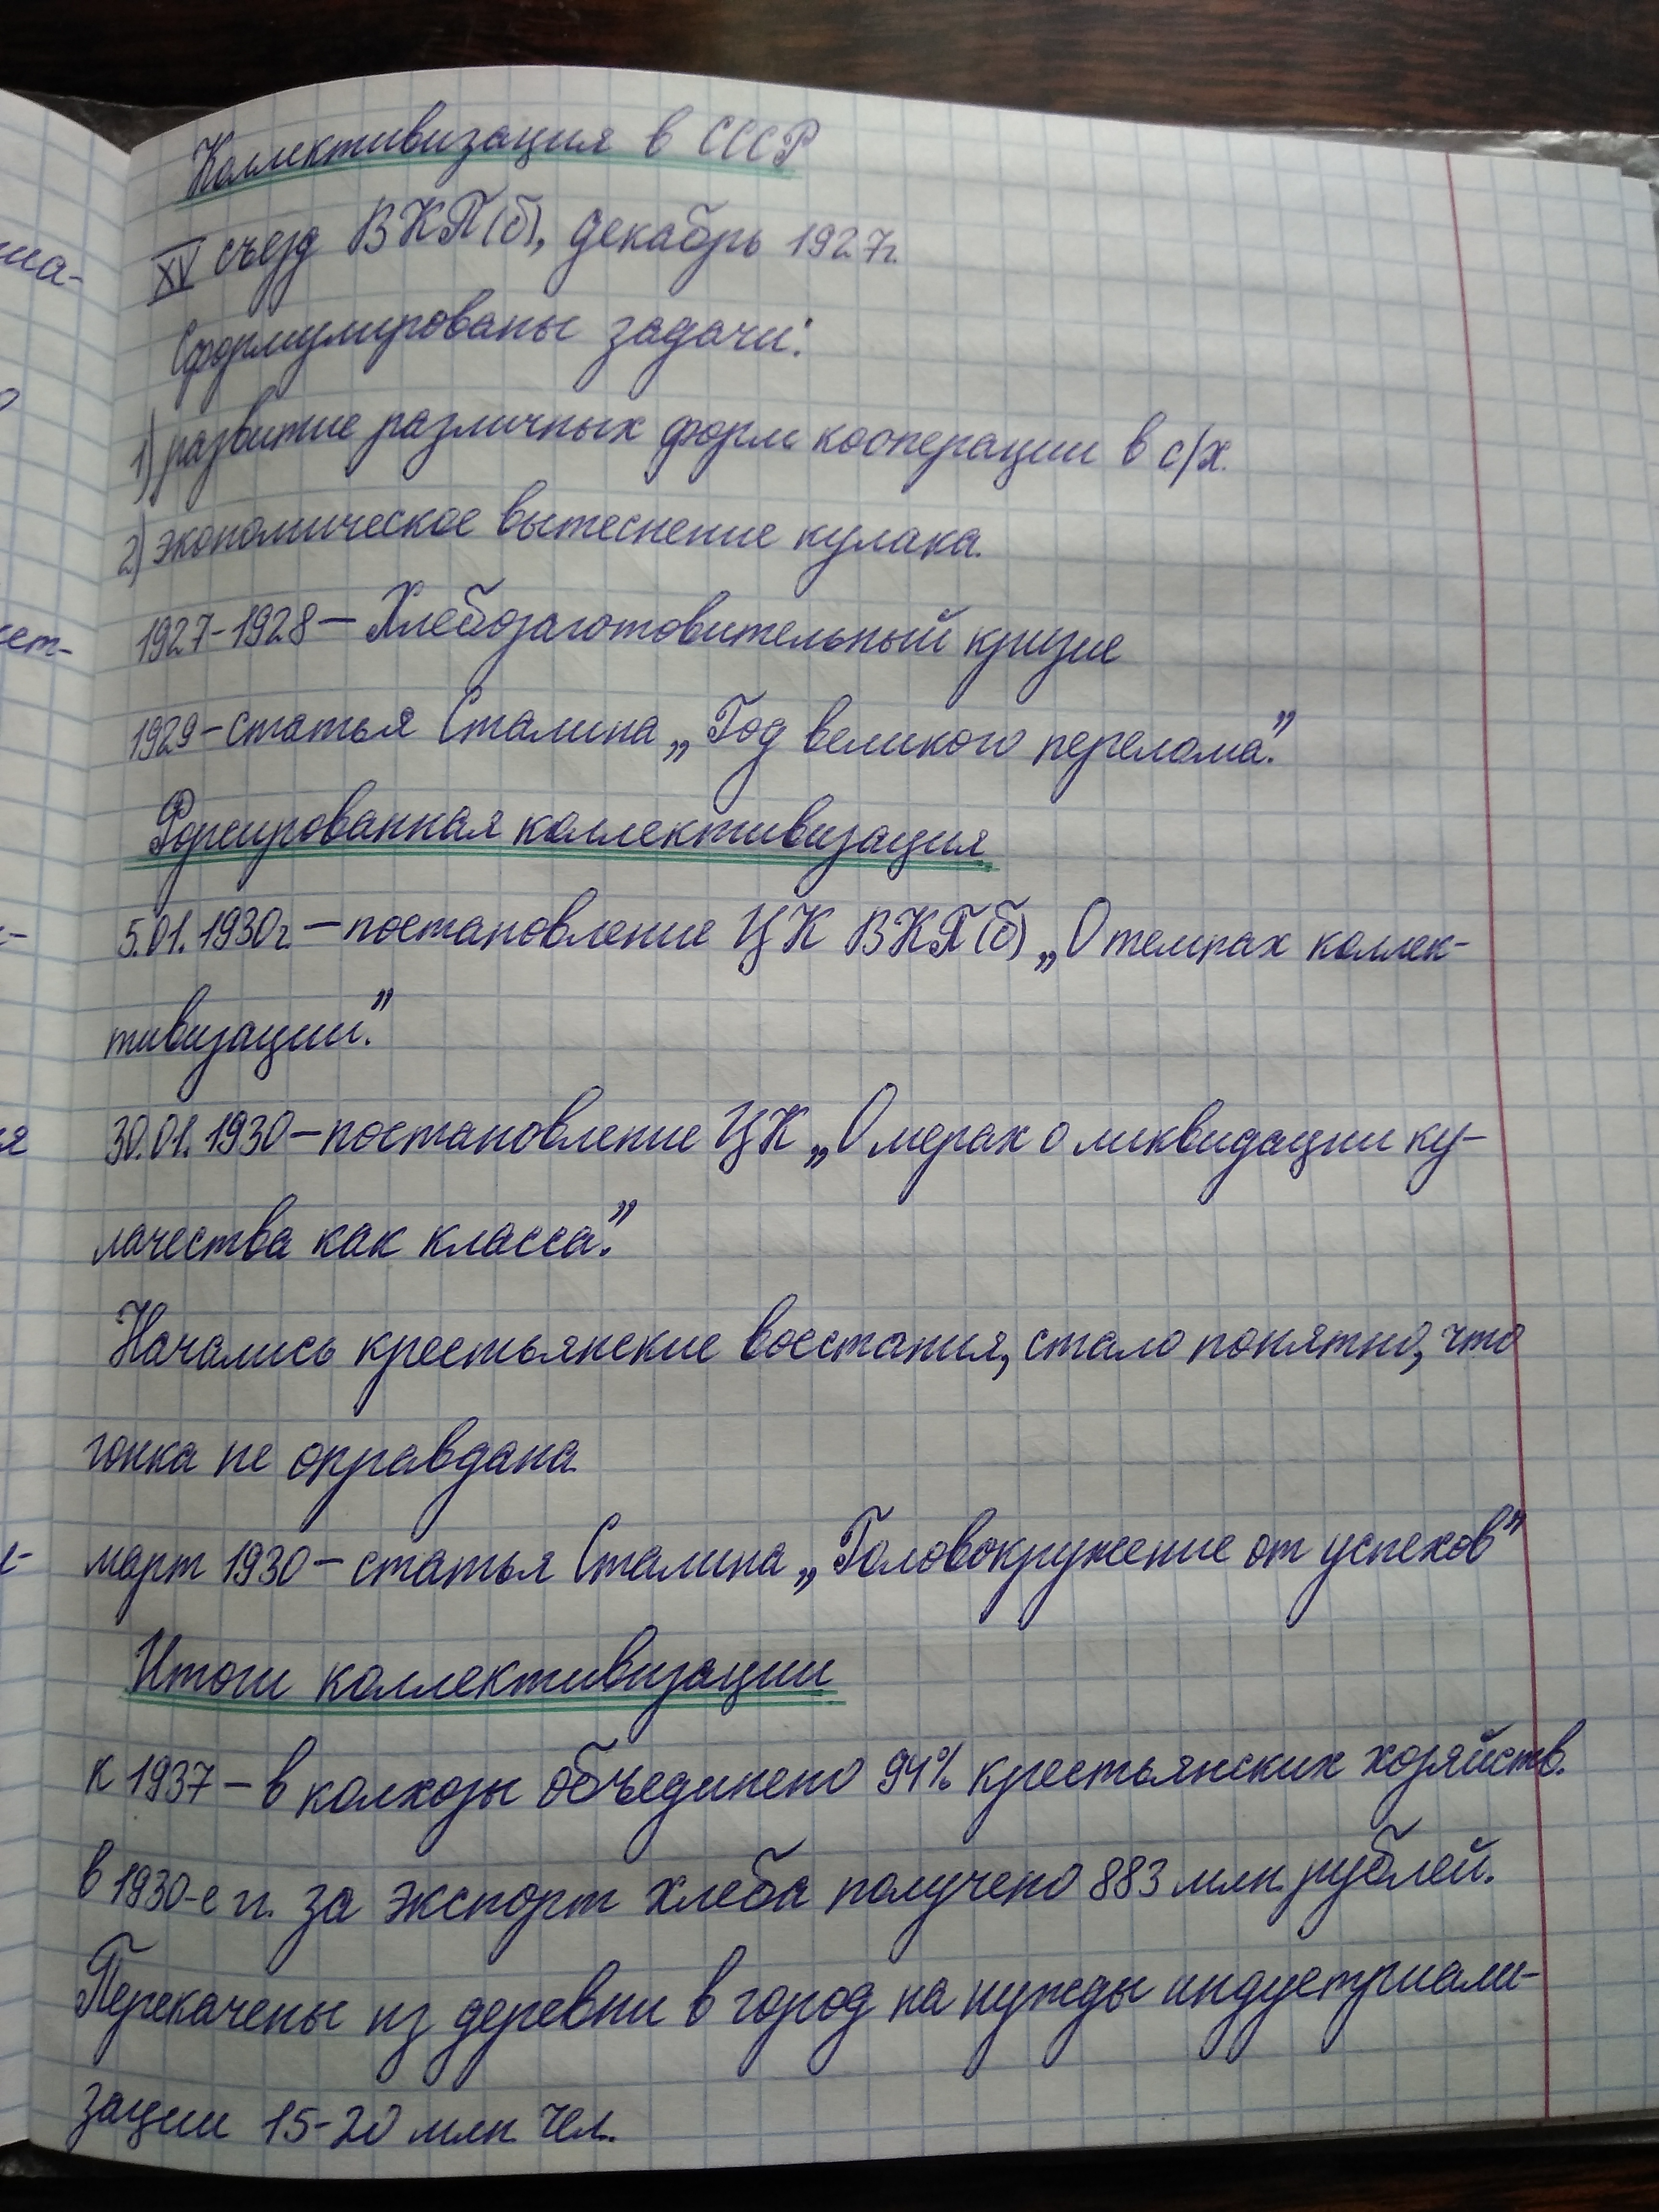 Коллективизация в СССР
XV съезд ВКП(б), декабрь 1927г.
Сформулированы задачи:
1) развитие различных форм кооперации в с/х.
2) экономическое вытеснение кулака.
1927-1928 – Хлебозаготовительный кризис
1929 – статья Сталина „Год великого перелома".
Форсированная коллективизация
5.01.1930г. – постановление ЦК ВКП(б) „О темпах коллек-
тивизации".
30.01.1930 – постановление ЦК „О мерах о ликвидации ку-
лачества как класса".
Начались крестьянские восстания, стало понятно, что
гонка не оправдана.
март 1930 – статья Сталина „Головокружение от успехов"
Итоги коллективизации
к 1937 – в колхозы объединено 94% крестьянских хозяйств.
в 1930-е гг. за экспорт хлеба получено 883 млн. рублей.
Перекачены из деревни в город на нужды индустриали-
зации 15-20 млн. чел.